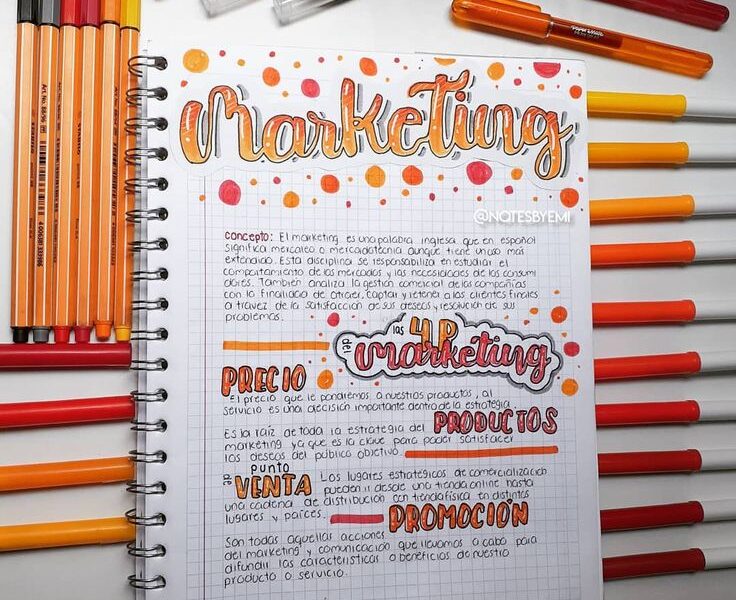 Marketing
@NOTESBYEMI
Concepto: El marketing es una palabra inglesa que en español
significa mercadeo o mercadotecnia aunque tiene un uso más
extendido. Esta disciplina se responsabiliza en estudiar el
comportamiento de los mercados y las necesidades de los consumi
dores. También analiza la gestión comercial de las compañías
con la finalidad de atraer, captar y retener a los clientes finales
a travez de la satisfacción de sus deseos y resolución de sus
problemas.
las 4P
del marketing
PRECIO
El precio que le pondremos a nuestros productos, al
servicio es una decisión importante dentro de la estrategia.
Es la raíz de toda la estrategia del PRODUCTOS
marketing ya que es la clave para poder satisfacer
los deseos del público objetivo.
punto
de VENTA Los lugares estratégicos de comercialización
pueden ir desde una tienda online hasta
una cadena de distribución con tienda física en distintos
lugares y países. PROMOCIÓN
Son todas aquellas acciones
del marketing y comunicación que llevamos a cabo para
difundir las características o beneficios de nuestro
producto o servicio.
STABILO